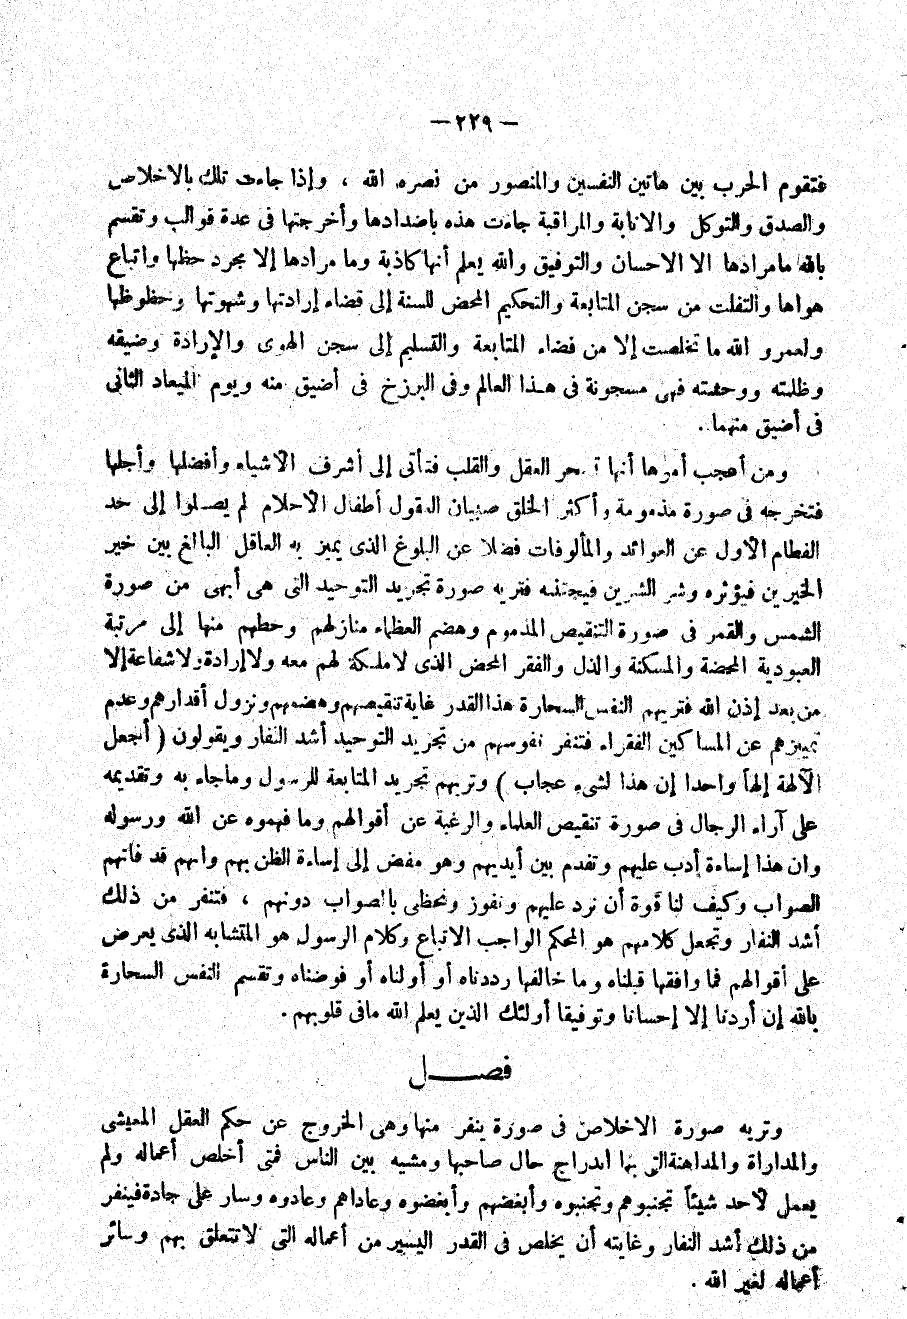 — ٢٢٩ —
فتقوم الحرب بين هاتين النفسين والمنصور من نصره الله ، وإذا جاءت تلك بالاخلاص
والصدق والتوكل والانابة والمراقبة جاءت هذه باضدادها وأخرجتها فى عدة قوالب وتقسم
بالله مامرادها الا الاحسان والتوفيق والله يعلم أنها كاذبة وما مرادها إلا مجرد حظها واتباع
هواها والتفلت من سجن المتابعة والتحكيم المحض للسنة إلى قضاء إرادتها وشهوتها وحظوظها
ولعمرو الله ما تخلصت إلا من فضاء المتابعة والتسليم إلى سجن الهوى والإرادة وضيقه
وظلمته ووحشته فهى مسجونة فى هذا العالم وفى البرزخ فى أضيق منه ويوم الميعاد الثانى
فى أضيق منهما.
ومن أعجب أمرها أنها تسحر العقل والقلب فتأتى إلى أشرف الأشياء وأفضلها وأجلها
فتخرجه فى صورة مذمومة وأكثر الخلق صبيان العقول أطفال الأحلام لم يصلوا إلى حد
الفطام الأول عن العوائد والمألوفات فضلا عن البلوغ الذى يميز به العاقل البالغ بين خير
الخيرين فيؤثره وشر الشرين فيجتنبه فتريه صورة تجريد التوحيد التى هى أبهى من صورة
الشمس والقمر فى صورة التنقيص المذموم وهضم العظماء منازلهم وحطهم منها إلى مرتبة
العبودية المحضة والمسكنة والذل والفقر المحض الذى لاملكة لهم معه ولا إرادة ولاشفاعة إلا
من بعد إذن الله فتريهم النفس السحارة هذا القدر غاية تنقيصهم وهضمهم ونزول أقدارهم وعدم
تمييزهم عن المساكين الفقراء فتنفر نفوسهم من تجريد التوحيد أشد النفار ويقولون ( أجعل
الآلهة إلهاً واحدا إن هذا لشىء عجاب ) وتريهم تجريد المتابعة للرسول وماجاء به وتقديمه
على آراء الرجال فى صورة تنقيص العلماء والرغبة عن أقوالهم وما فهموه عن الله ورسوله
وان هذا إساءة أدب عليهم وتقدم بين أيديهم وهو مفض إلى إساءة الظن بهم وانهم قد فاتهم
الصواب وكيف لنا قوة أن نرد عليهم ونفوز ونحظى بالصواب دونهم ، فتنفر من ذلك
أشد النفار وتجعل كلامهم هو المحكم الواجب الاتباع وكلام الرسول هو المتشابه الذى يعرض
على أقوالهم فما وافقها قبلناه وما خالفها رددناه أو أولناه أو فوضناه وتقسم النفس السحارة
بالله إن أردنا إلا إحسانا وتوفيقا أولئك الذين يعلم الله مافى قلوبهم .
فصــــل
وتريه صورة الاخلاص فى صورة ينفر منها وهى الخروج عن حكم العقل المعيشى
والمداراة والمداهنة التى بها اندراج حال صاحبها ومشيه بين الناس فمتى أخلص أعماله ولم
يعمل لأحد شيئاً تجنبوهم وتجنبوه وأبغضهم وأبغضوه وعاداهم وعادوه وسار على جادة فينفر
من ذلك أشد النفار وغايته أن يخلص فى القدر اليسير من أعماله التى لاتتعلق بهم وسائر
أعماله لغير الله .